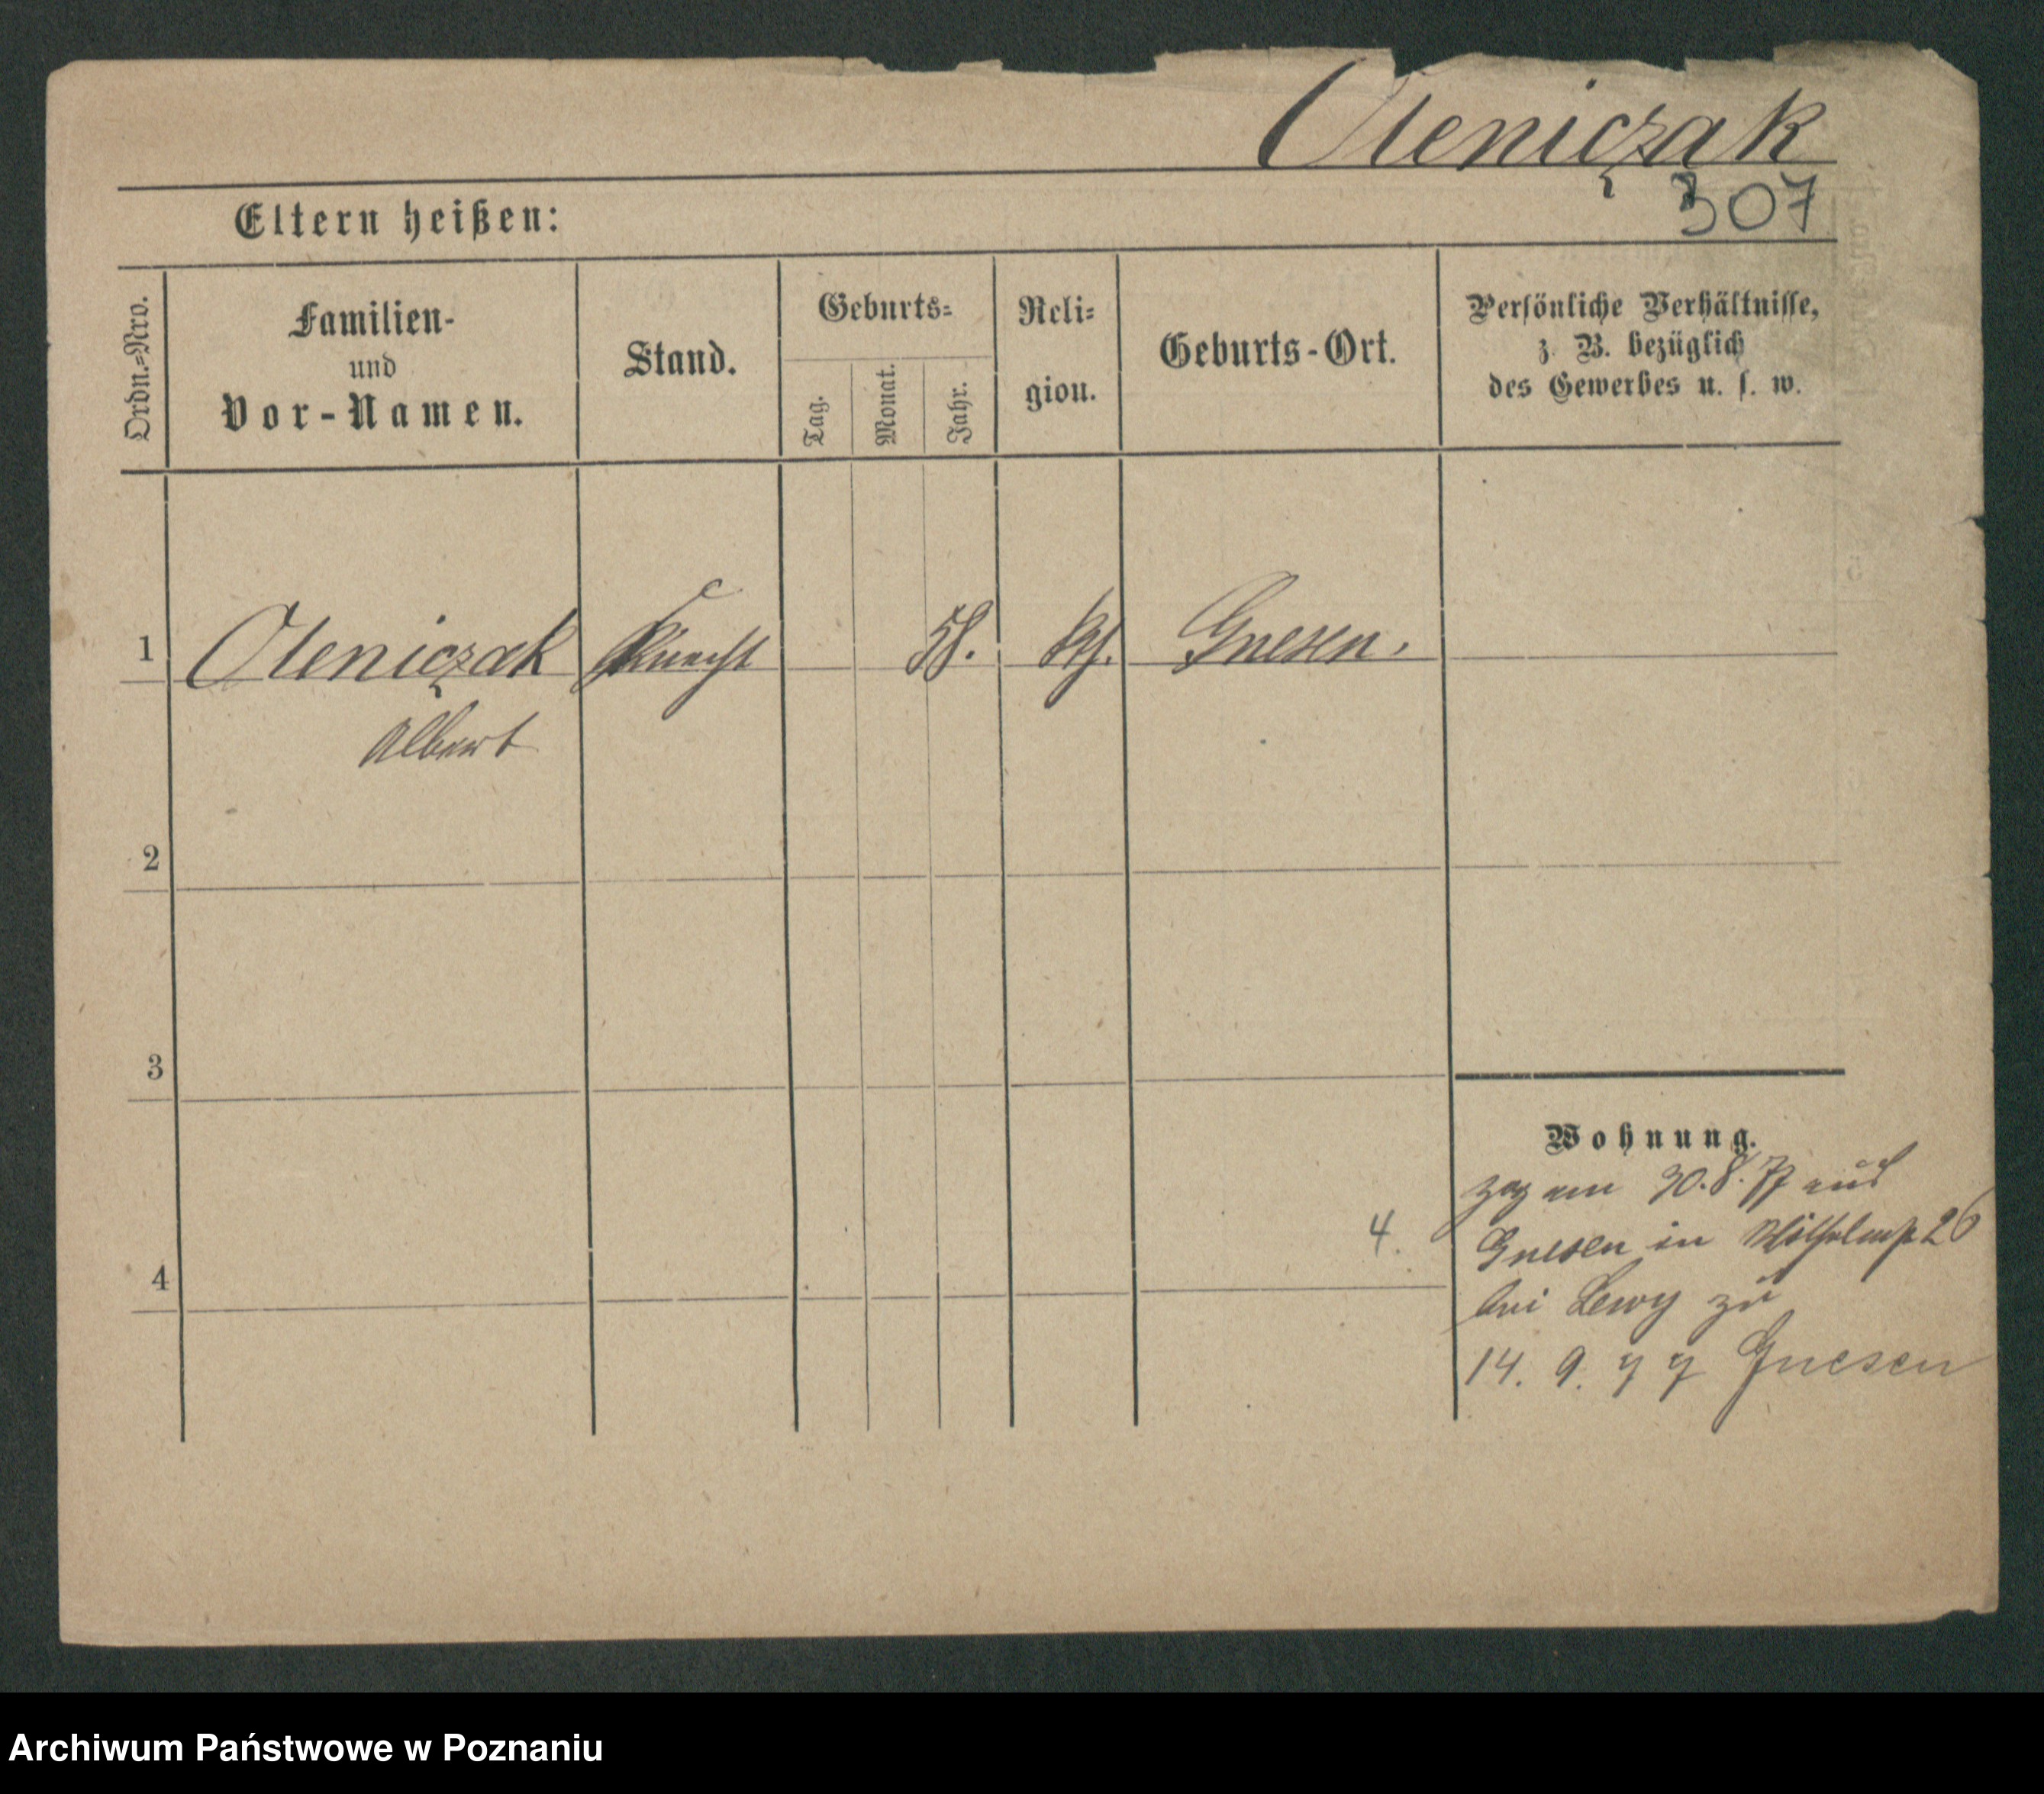 Oleniczak
307
Eltern heißen:
Ordn.=Nro.
Familien-
und
Vor-Namen.
Stand.
Geburts=
Tag.
Monat.
Jahr.
Reli=
gion.
Geburts-Ort.
Persönliche Verhältnisse,
z. B. bezüglich
des Gewerbes u. s. w.
1
Oleniczak Knecht 58. Gnesen.
Albert
2
3
Wohnung.
zog am 30.8.77 aus
4.
Gnesen in Wilhelmstr 26
4
bei Lewy zu
14. 9. 77 Gnesen
Archiwum Państwowe w Poznaniu